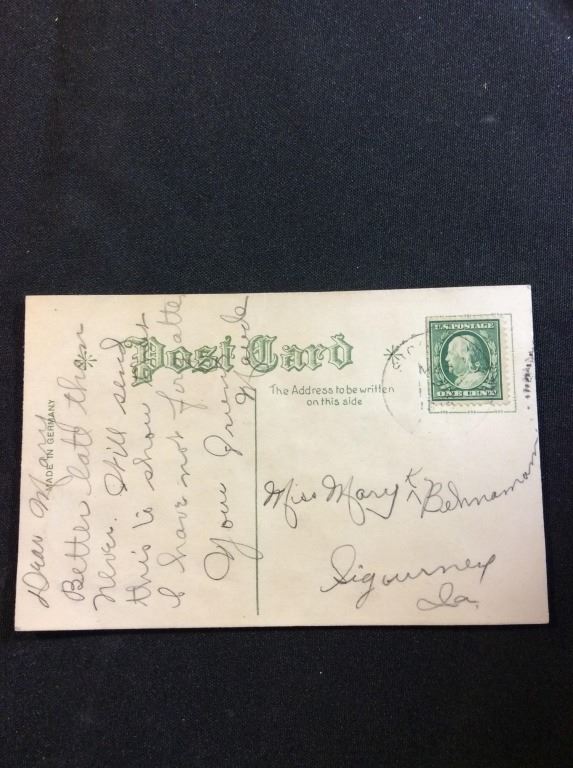 Post Card
The Address to be written
on this side
MADE IN GERMANY
U.S. POSTAGE
ONE CENT
Dear Mary
Better late than
never. Will send
this to show that
I have not
Your Friend
Miss Mary K Behnaman
Sigourney
Ia.